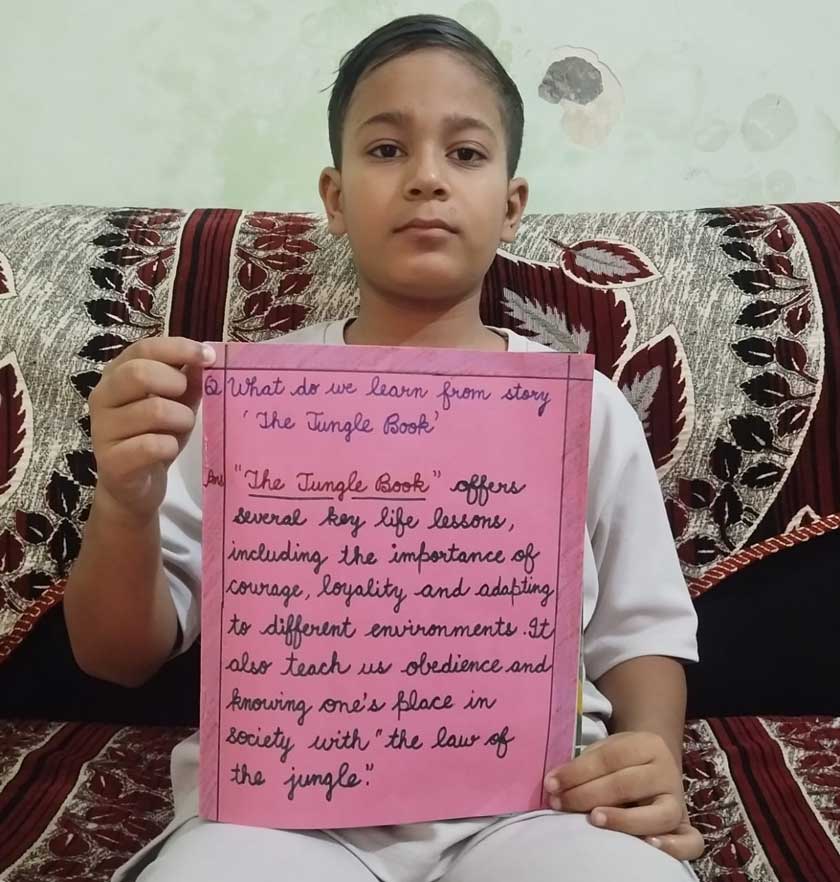 Q What do we learn from story
'The Jungle Book'
Ans "The Jungle Book" offers
several key life lessons,
including the importance of
courage, loyality and adapting
to different environments. It
also teach us obedience and
knowing one's place in
society with "the law of
the jungle".